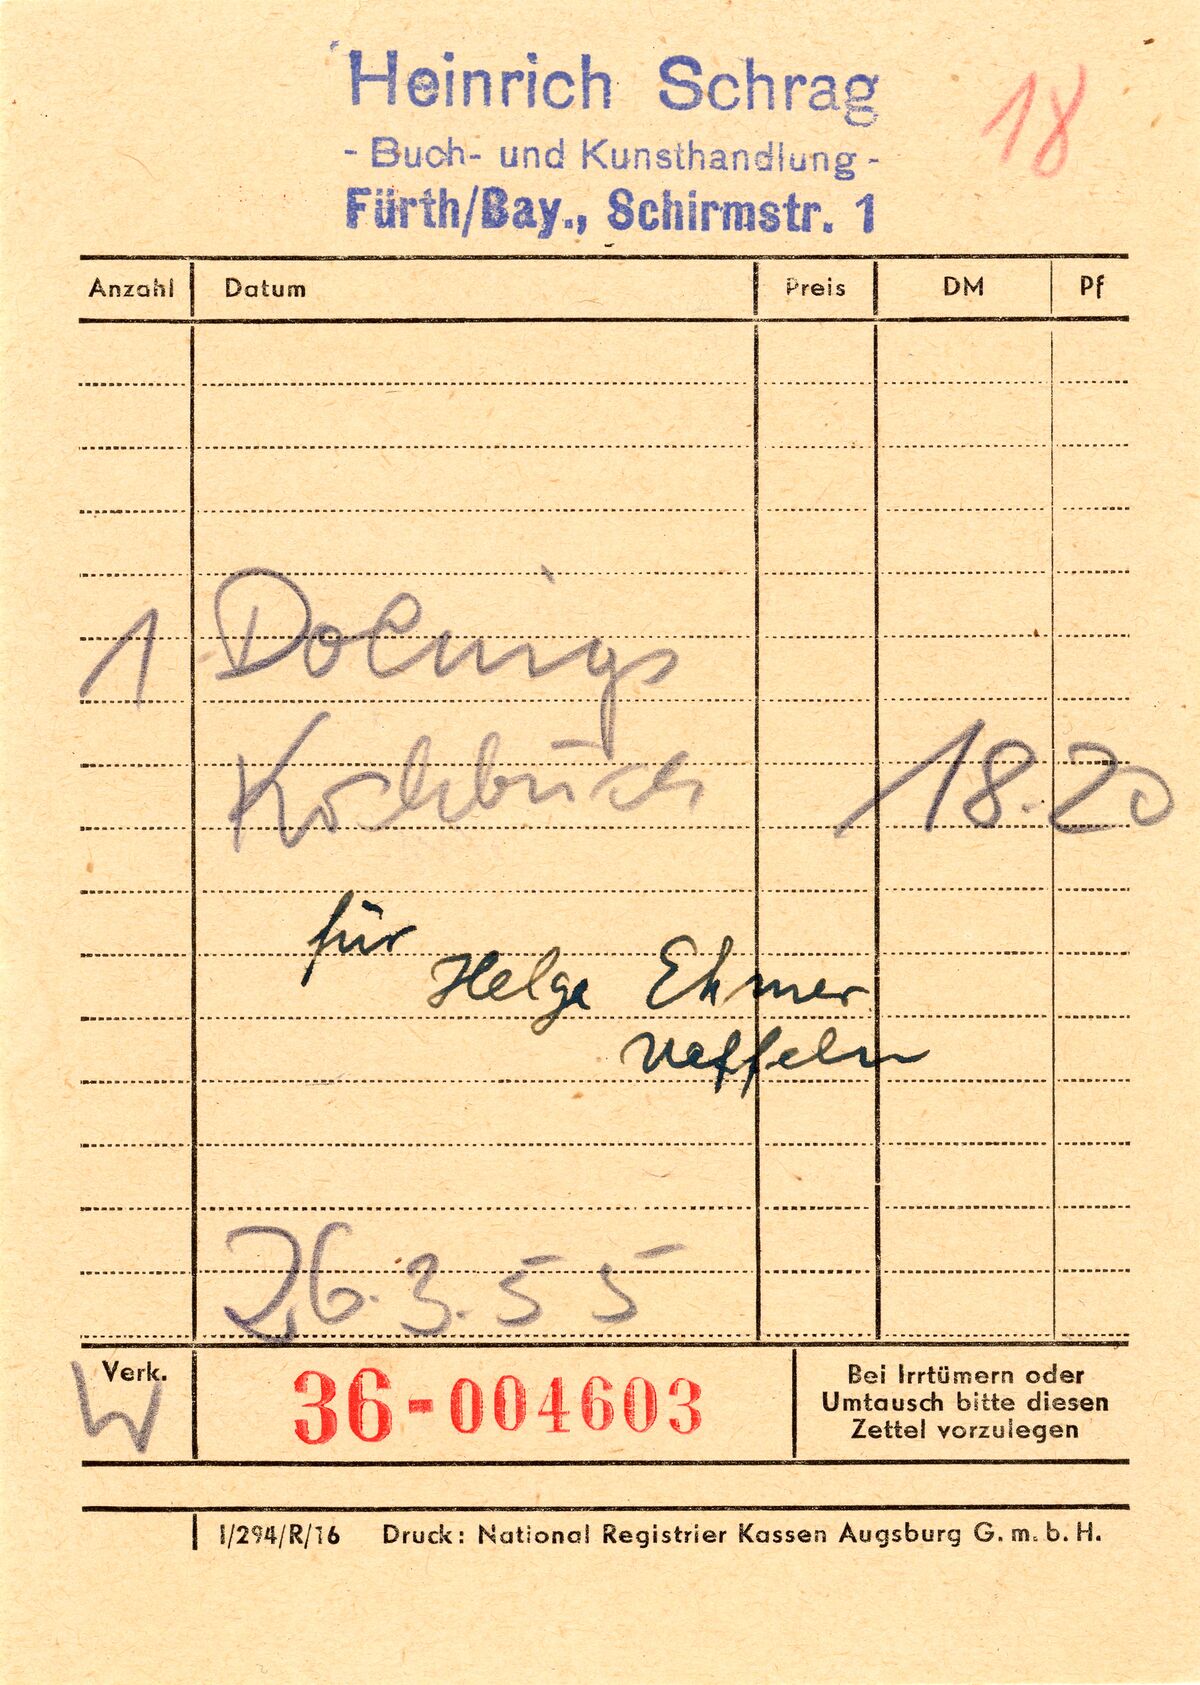 Heinrich Schrag
18
- Buch- und Kunsthandlung -
Fürth/Bay., Schirmstr. 1
Anzahl Datum Preis DM Pf
1
Kochbuch 18.20
für
Helge Ehmer
26.3.55
Verk. W 36-004603
Bei Irrtümern oder
Umtausch bitte diesen
Zettel vorzulegen
I/294/R/16 Druck: National Registrier Kassen Augsburg G. m. b. H.